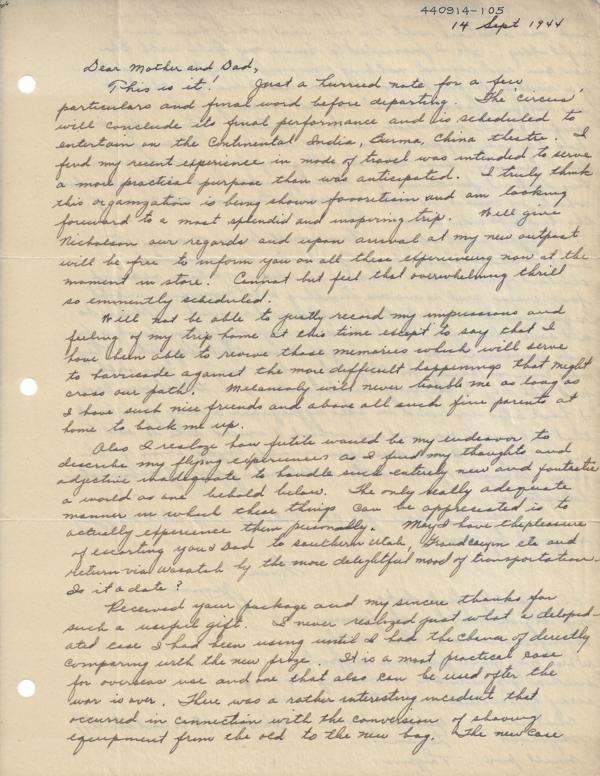 440914-105
14 Sept 1944
Dear Mother and Dad,
This is it! Just a hurried note for a few
particulars and final word before departing. The 'circus'
will conclude its final performance and is scheduled to
entertain on the Continental India, Burma, China theatre. I
find my recent experience in mode of travel was intended to serve
a more practical purpose than was anticipated. I truly think
this organization is being shown favoritism and am looking
forward to a most splendid and inspiring trip. Will give
Nicholson our regards and upon arrival at my new outpost
will be free to inform you on all these experiences now at the
moment in store. Cannot but feel that overwhelming thrill
so eminently scheduled.
Will not be able to justly record my impressions and
feeling of my trip home at this time except to say that I
have been able to revive those memories which will serve
to barricade against the more difficult happenings that might
cross our path. Melancoly will never trouble me as long as
I have such nice friends and above all such fine parents at
home to back me up.
Also I realize how futile would be my endeavor to
describe my flying experiences as I find my thoughts and
adjective inadequate to handle such entirely new and fantastic
a world as one behold below. The only really adequate
manner in which these things can be appreciated is to
actually experience them personally. May I have the pleasure
of escorting you & Dad to southern Utah, Grand canyn etc and
return via Wasatch by the more delightful mood of transportation.
Is it a date?
Received your package and my sincere thanks for
such a useful gift. I never realized just what a delapid-
ated case I had been using until I had the chance of directly
comparing with the new prize. It is a most practical case
for overseas use and one that also can be used after the
war is over. There was a rather interesting incident that
occurred in connection with the conversion of shaving
equipment from the old to the new bag. The new case